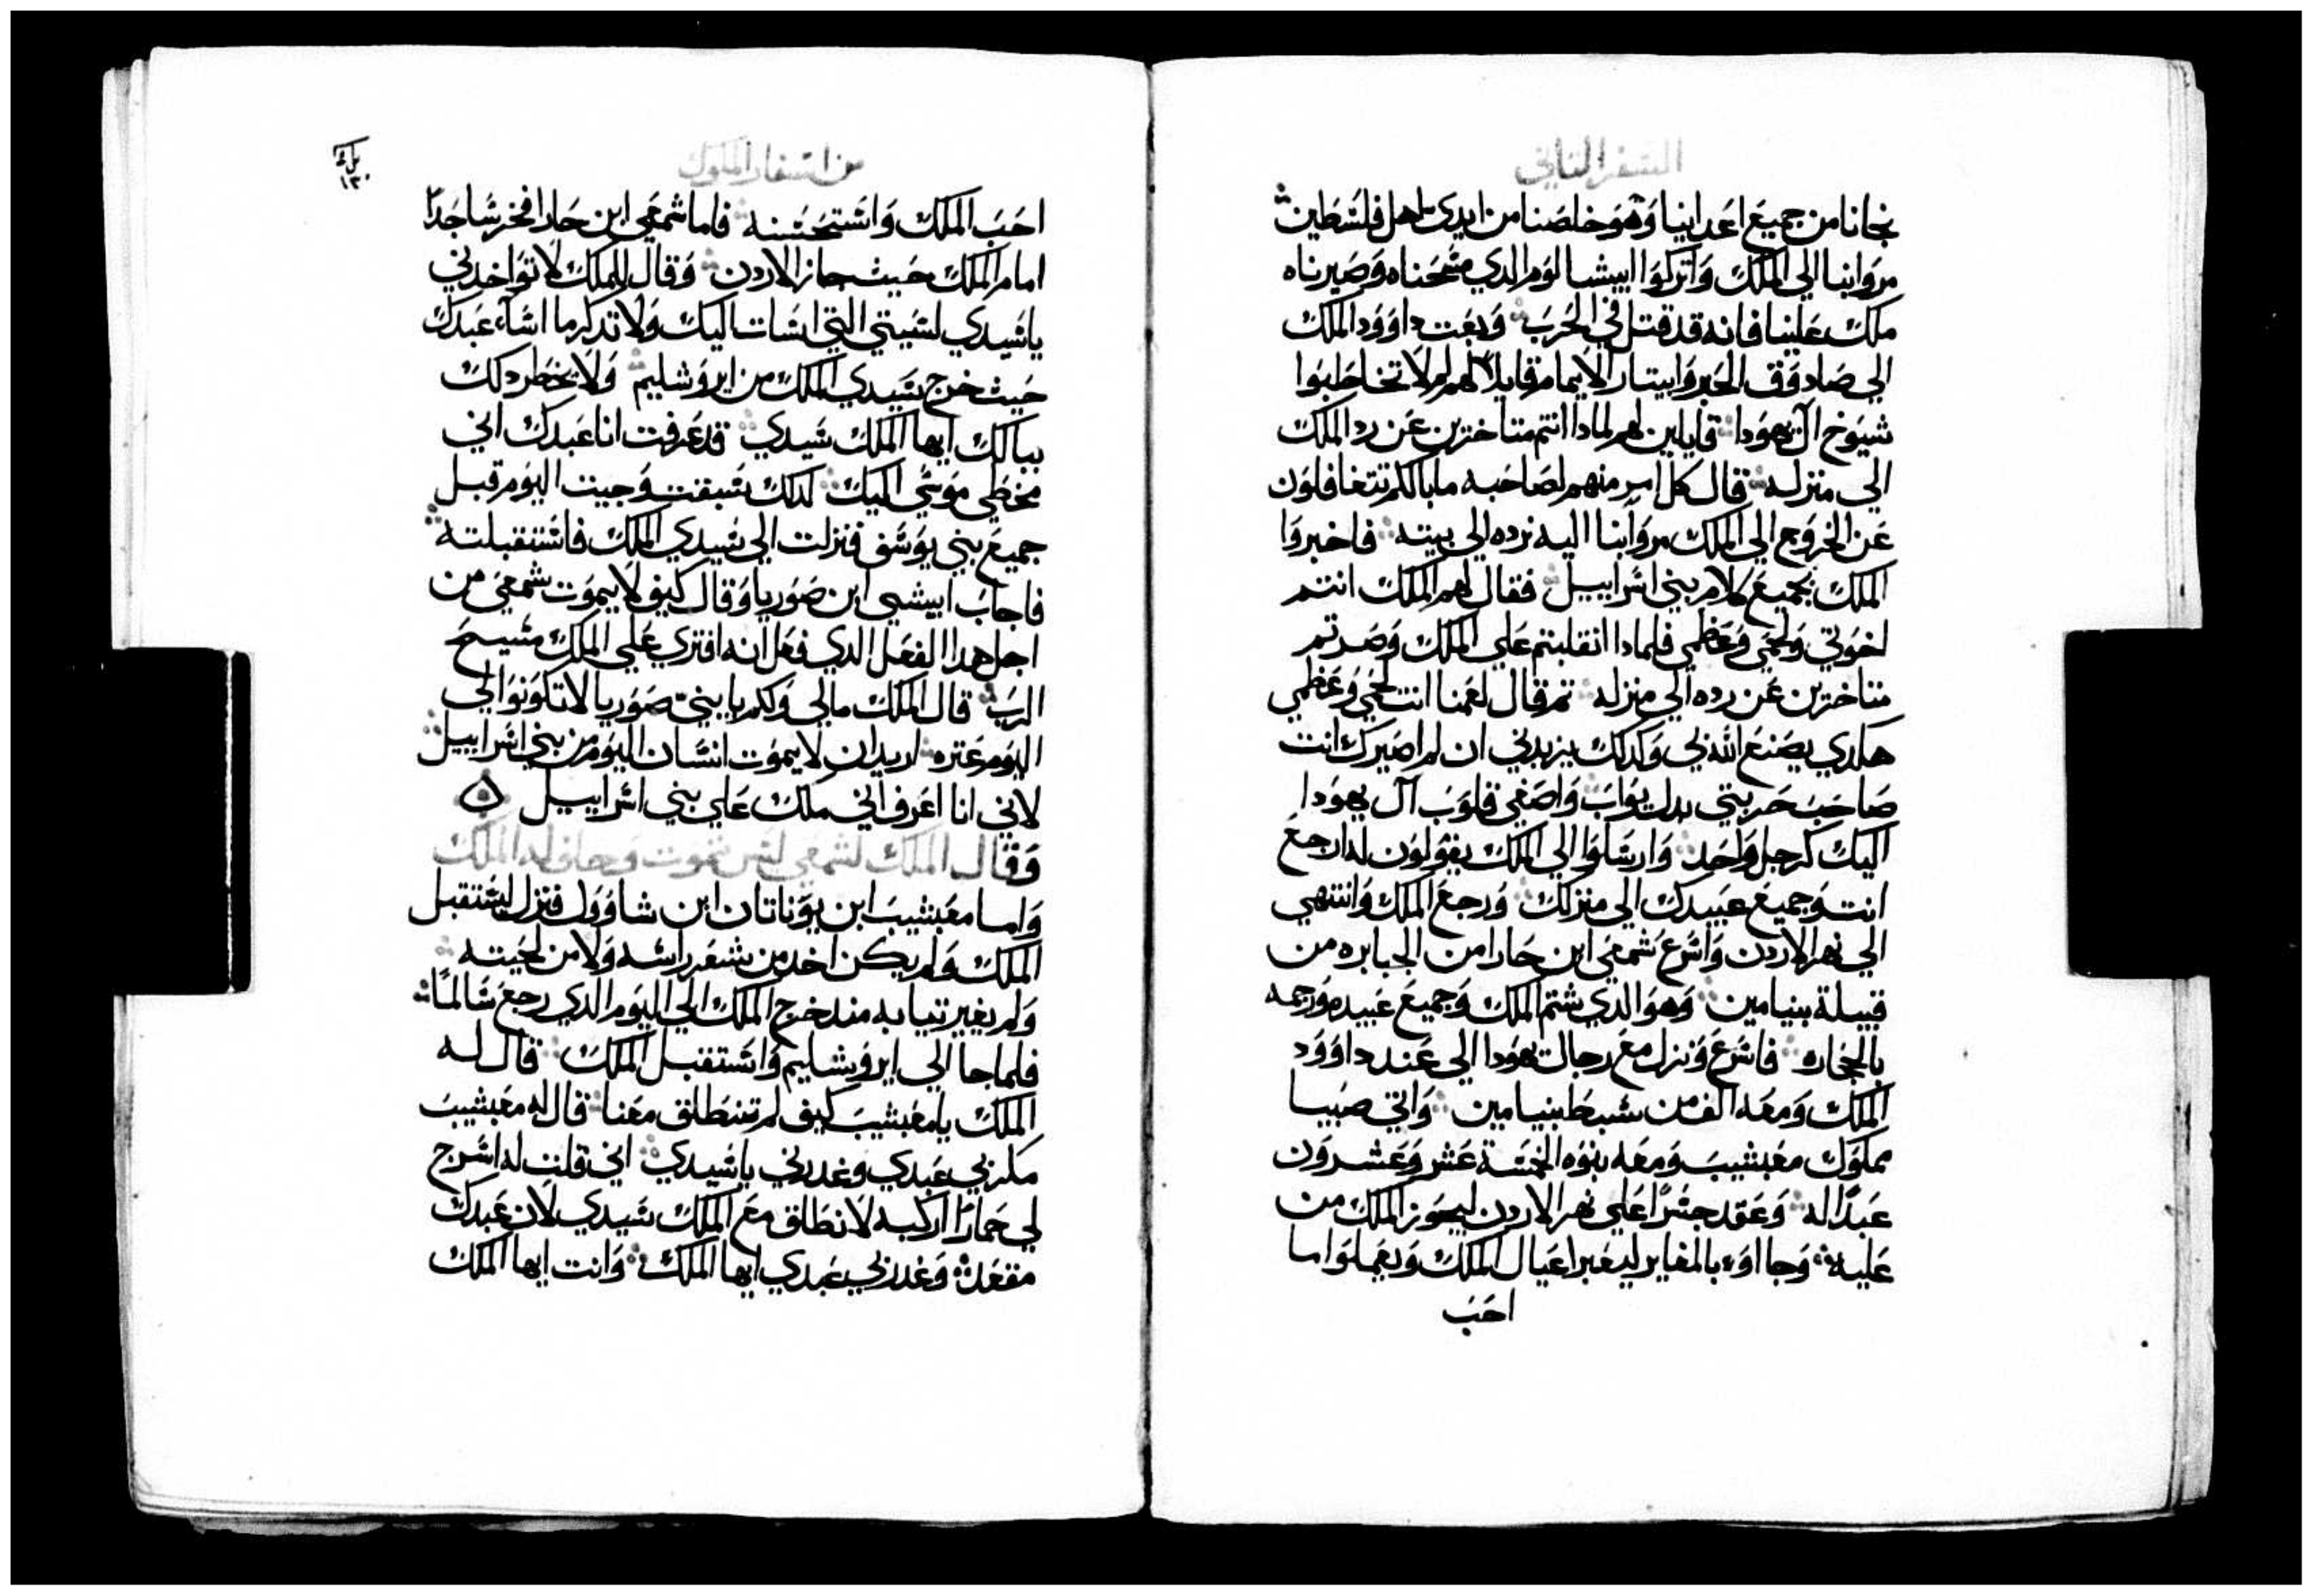 السفر الثاني
نجانا من جميع اعدائنا وهو خلصنا من ايدي اهل فلسطين
مروا بنا الي الملك واتركوا ابيشالوم الدي مسحناه وصيرناه
ملك علينا فانه قد قتل في الحرب وبعت داوود الملك
الي صادوق الحبر وابيتار الايمام قايلا لهم لم لا تخاطبوا
شيوخ آل يهودا قايلين لهم لمادا انتم متاخرين عن رد الملك
الي منزله قال كل امر منهم لصاحبه ما بالكم تتغافلون
عن الخروج الي الملك مروا بنا اليه نرده الي بيته فاخبروا
الملك بجميع كلام بني اسراييل فقال لهم الملك انتم
اخوتي ولحمي وعظمي فلمادا انقلبتم علي الملك وصرتم
متاخرين عن رده الي منزله تم قال لعمنا انت لحمي وعظمي
هكدي يصنع الله بي وكدلك يزيدني ان لم اصيرك انت
صاحب حربتي بدل يواب واصغي قلوب آل يهودا
اليك كرجل واحد وارسلوا الي الملك يقولون له ارجع
انت وجميع عبيدك الي منزلك ورجع الملك وانتهي
الي نهر الاردن واسرع شمعي ابن حارا من الجبابره من
قبيلة بنيامين وهو الدي شتم الملك وجميع عبيده ورجمه
بالحجاره فاسرع ونزل مع رجال يهودا الي عند داوود
الملك ومعه الف من سبط بنيامين واتي صيبا
مملوك مغبشيب ومعه بنوه الخمسة عشر وعشرون
عبدا له وعقد جسرا علي نهر الاردن ليجوز الملك من
عليه وجااوء بالمغاير ليعبرا عيال الملك ويعملوا ما
احب
من اسفار الملوك
احب الملك واستحسنه فاما شمعي ابن حارا فخر ساجدا
امام الملك حيث جاز الاردن وقال للملك لا تواخدني
يا سيدي لسيتي التي اسات اليك ولا تدكر ما اساء عبدك
حيث خرج سيدي الملك من ايروشليم ولا يخطر دلك
ببالك ايها الملك سيدي قد عرفت انا عبدك اني
مخطي موسي اليك لدلك سبقت وجيت اليوم قبل
جميع بني يوسف فنزلت الي سيدي الملك فاستقبلته
فاجاب ابيشي ابن صوريا وقال كيف لا يموت شمعي من
اجل هدا الفعل الدي فعل انه افتري علي الملك مسيح
الرب قال الملك مالي ولكم يا بني صوريا لا تكونوا لي
اليوم عتره اريد ان لا يموت انسان اليوم من بني اسراييل
لاني انا اعرف اني ملك علي بني اسراييل
وقال الملك لشمعي ليس تموت وحلف له الملك
واما مغبشيب ابن يوناتان ابن شاوول فنزل ليستقبل
الملك ولم يكن اخد من شعر راسه ولا من لحيته
ولم يغير تيابه مند خرج الملك الي اليوم الدي رجع سالما
فلما جا الي ايروشليم واستقبل الملك قال له
الملك يا مغبشيب كيف لم تنطلق معنا قال له مغبشيب
مكر بي عبدي وغدرني يا سيدي اني قلت له اسرج
لي حمارا اركبه لانطلق مع الملك سيدي لان عبدك
مقعد وغدر بي عبدي ايها الملك وانت ايها الملك